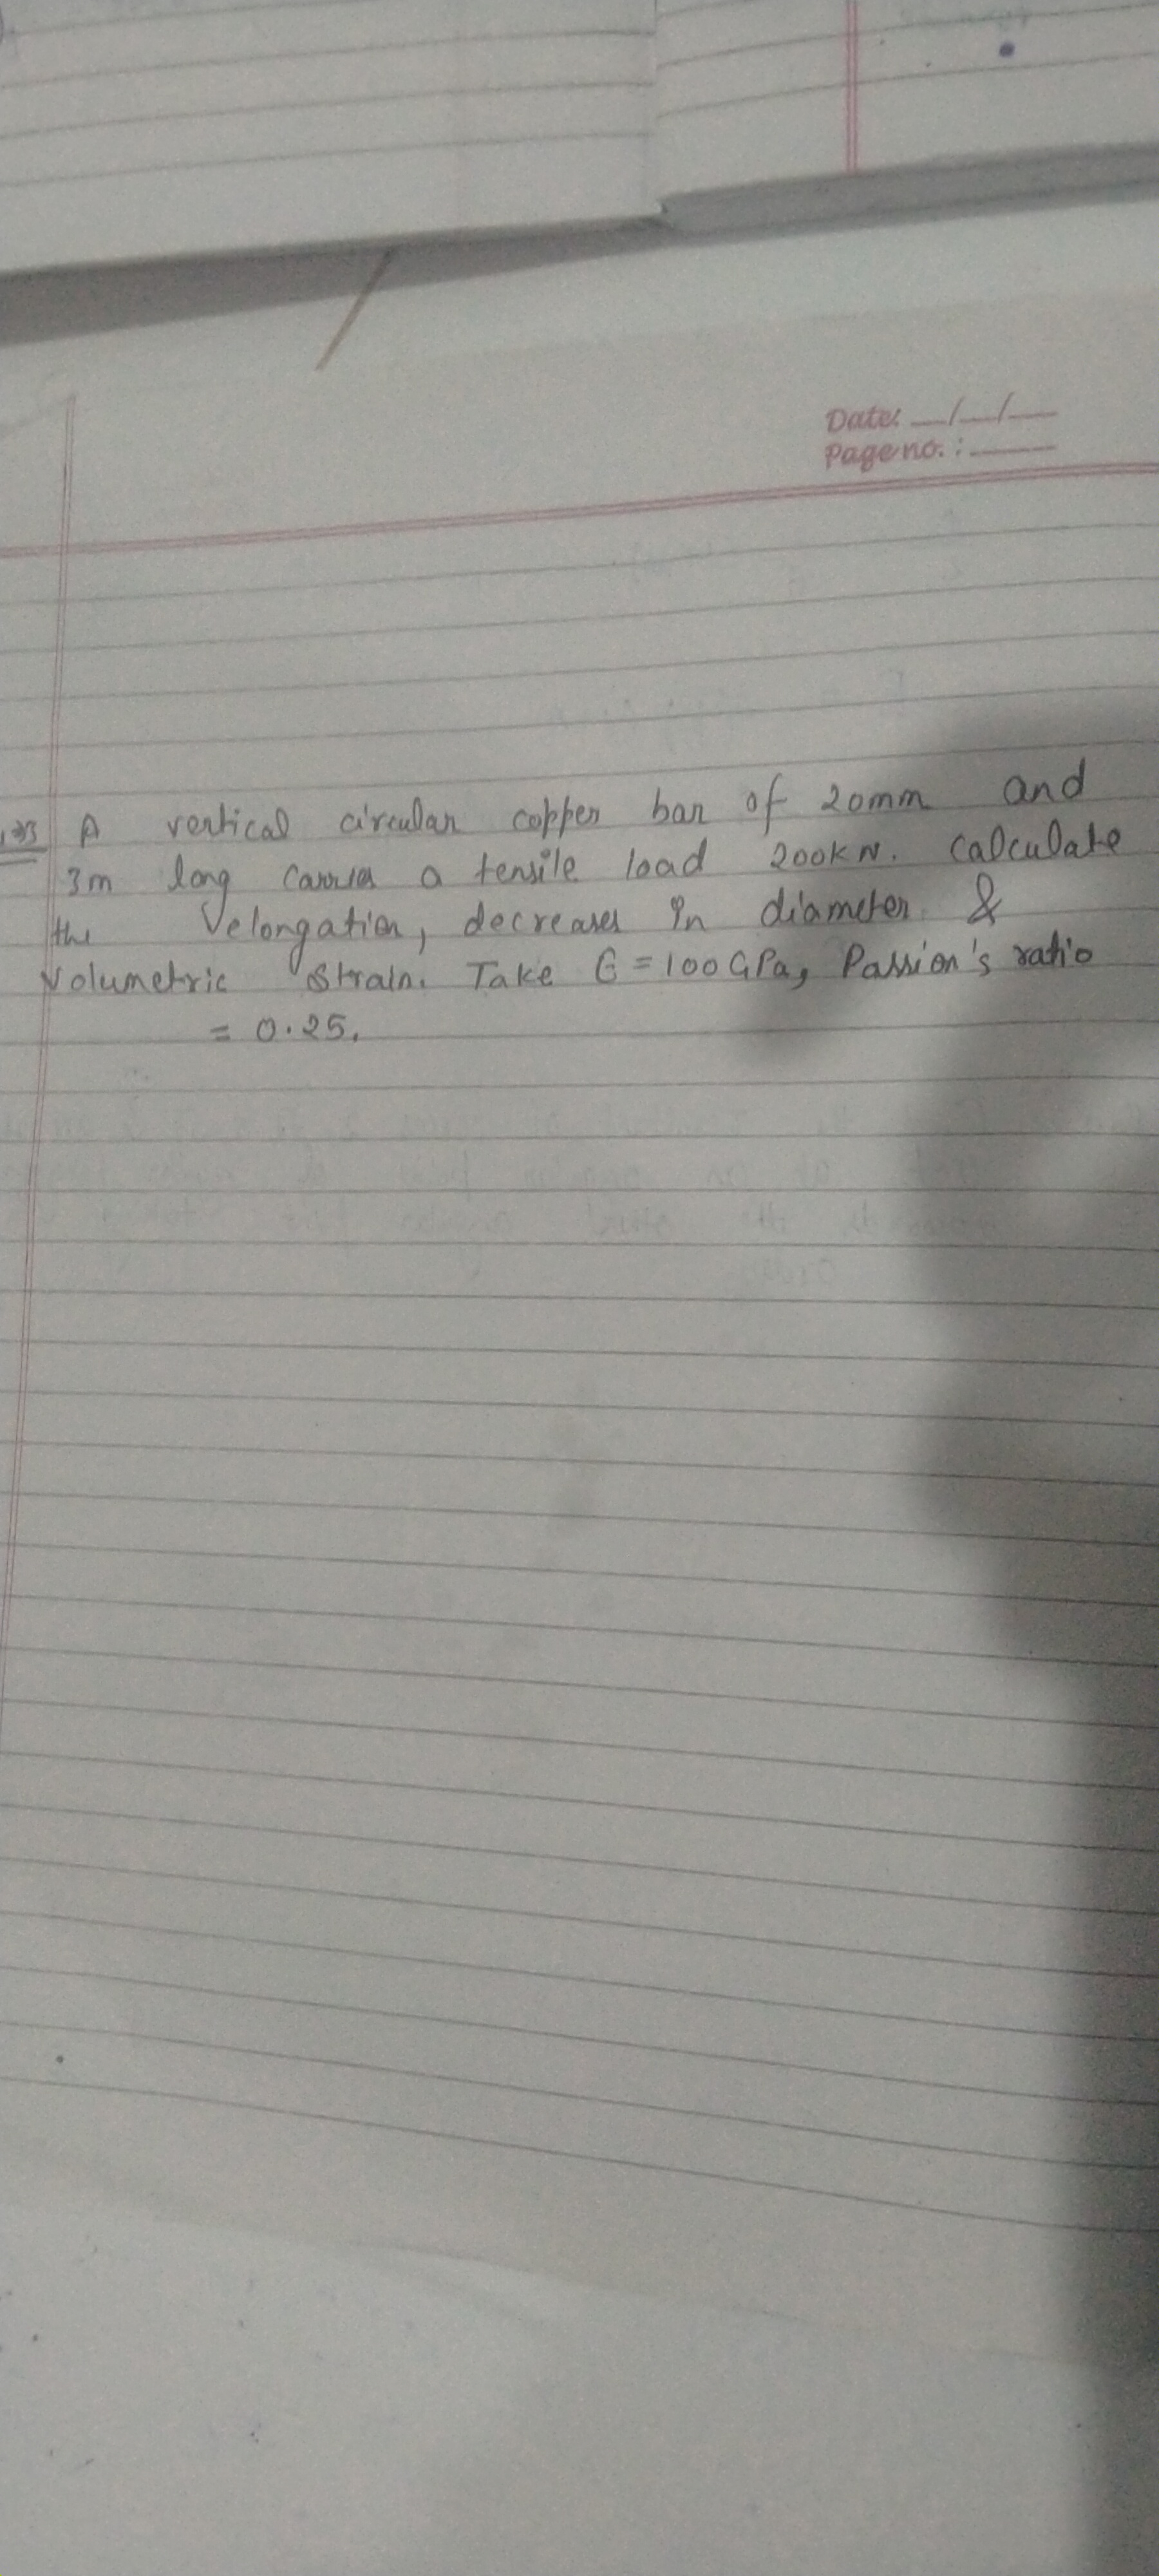 Date: __/__/__
Page no. : ____
A vertical circular copper bar of 20mm and
3m long carries a tensile load 200kN. Calculate
the elongation, decreases in diameter &
Volumetric strain. Take E=100GPa, Passion's ratio
= 0.25.